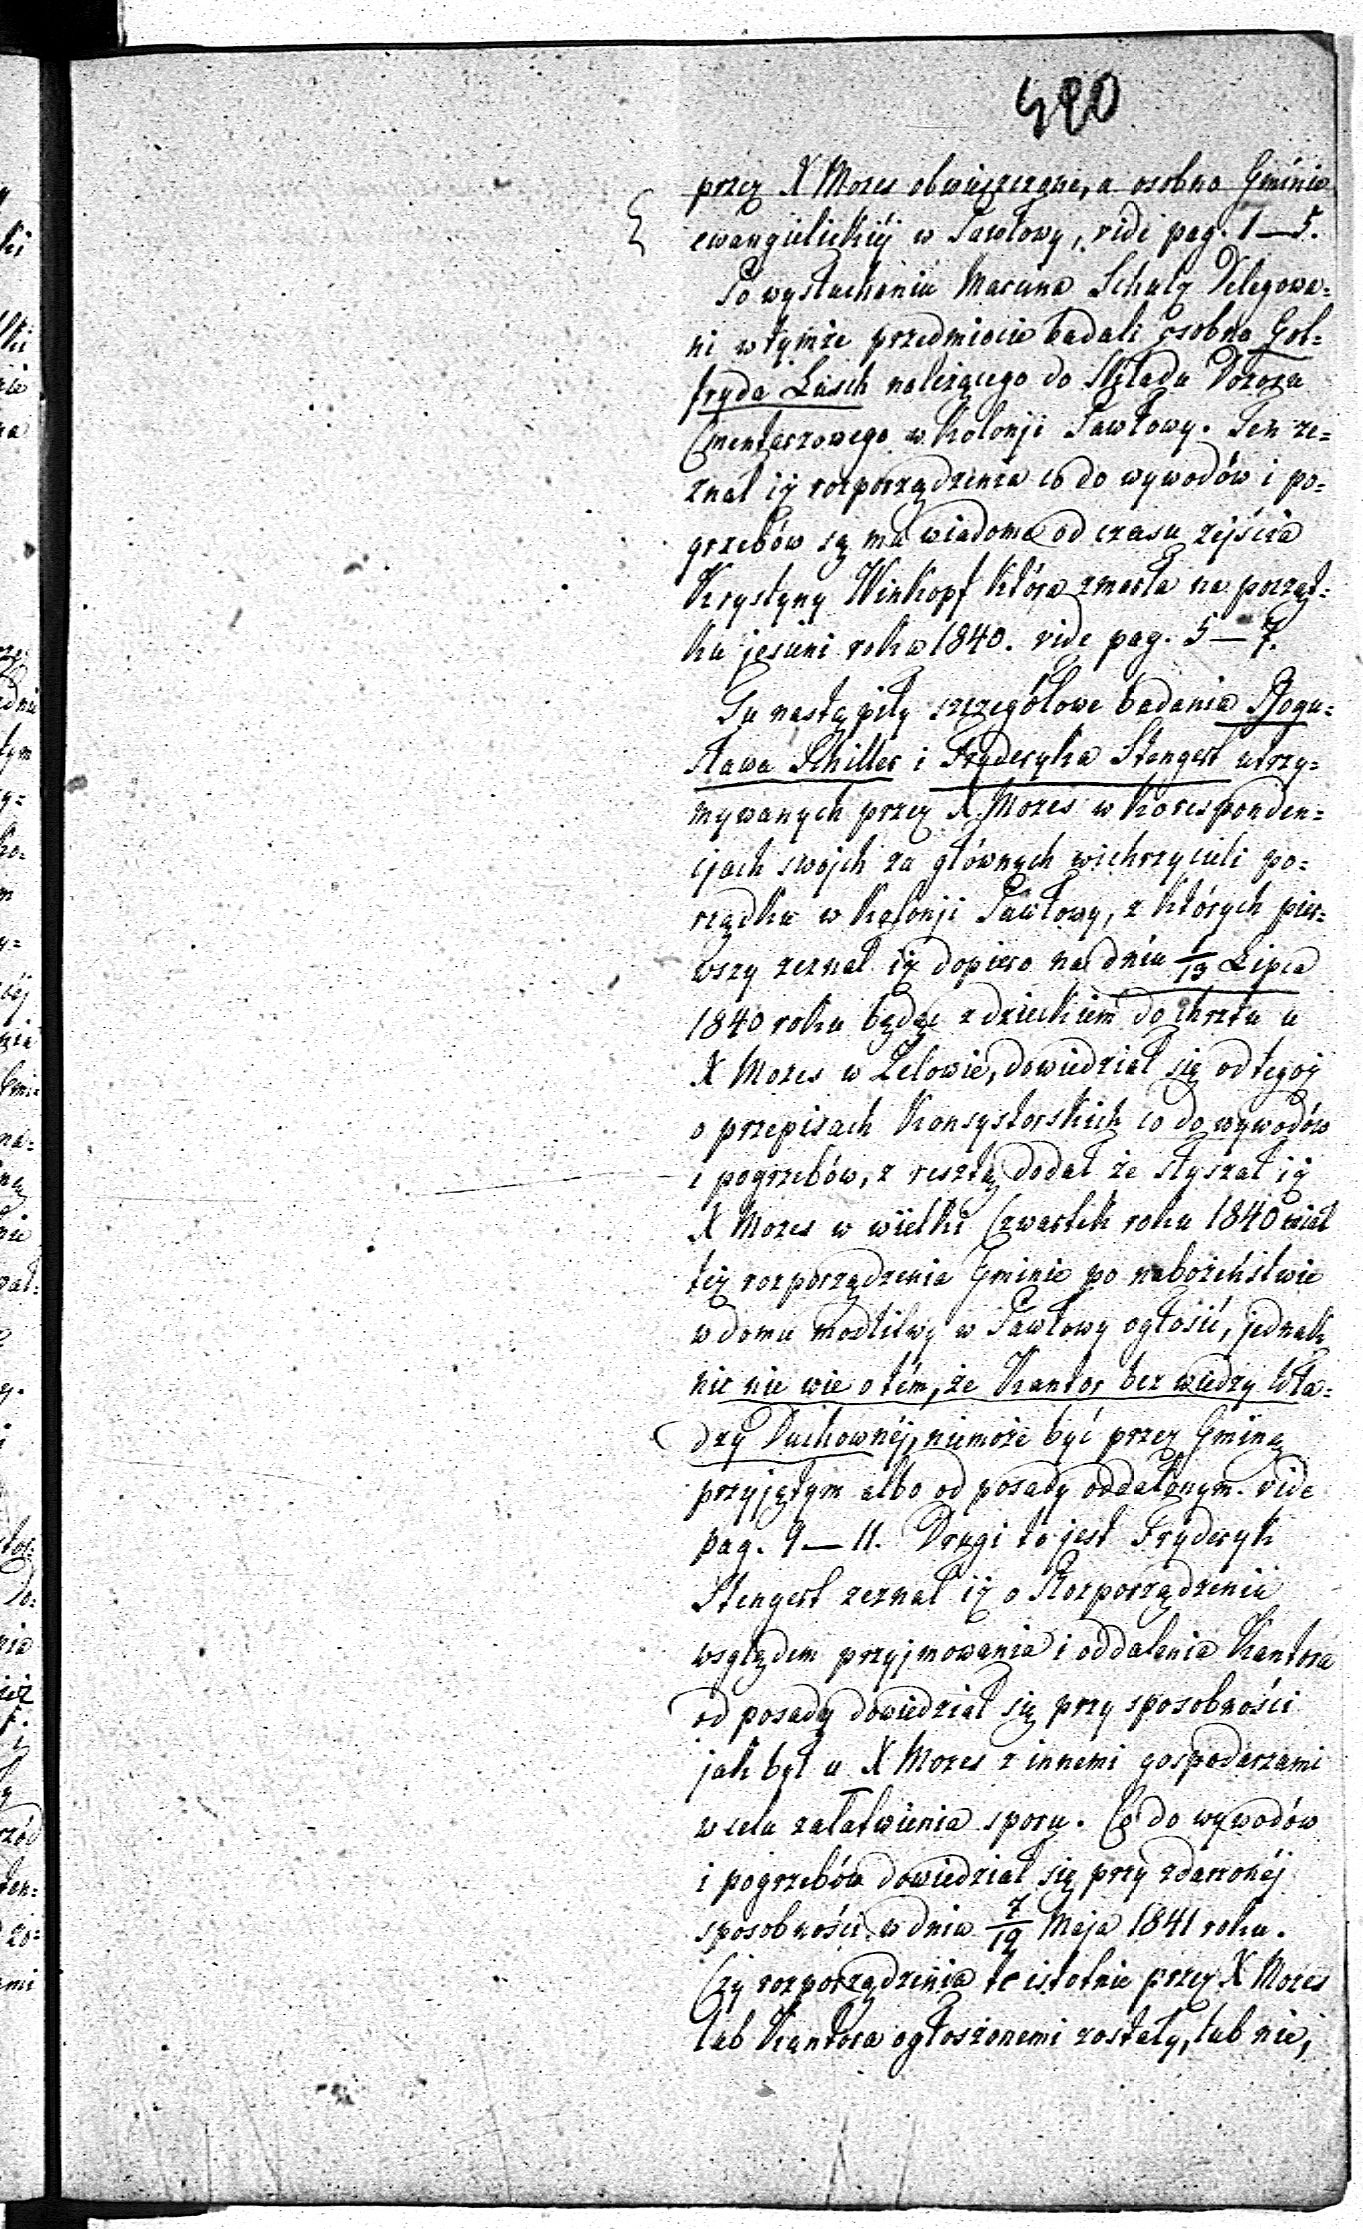 420
przez X Mozes obwieszczone, a osobno Gminie
ewangielickiéj w Pawłowy, vide pag. 1—5.
Po wysłuchaniu Marcina Schulz Delegowa=
ni w tymże przedmiocie badali osobno Got=
fryda Läsch należącego do Składu Dozoru
Cmentarzowego w Kolonji Pawłowy. Ten ze=
znał iż rozporządzenia co do wywodów i po=
grzebów są mu wiadome od czasu zejścia
Krystyny Winkopf która zmarła na począt=
ku jesieni roku 1840. vide pag. 5—7.
Tu nastąpiły szczegółowe badania Bogu=
sława Schiller i Fryderyka Stengert utrzy=
mywanych przez X Mozes w Korresponden=
cjach swojch za głównych wichrzycieli po=
rządku w Kolonji Pawłowy, z których pier=
wszy zeznał iż dopiero na dniu 1/13 Lipca
1840 roku będąc z dzieckiem do chrztu u
X Mozes w Zelowie, dowiedział się od tegoż
o przepisach Konsystorskich co do wywodów
i pogrzebów, z resztą dodał że słyszał iż
X Mozes w wielki Czwartek roku 1840 miał
też rozporządzenia Gminie po nabożeństwie
w domu modlitwy w Pawłowy ogłosić, jednak
nic nie wie o tém, że Kantor bez wiedzy Wła=
dzy Duchownéj, niemoże być przez Gminę
przyjętym albo od posady oddalonym. vide
pag. 9—11. Drugi to jest Fryderyk
Stengert zeznał iż o Rozporządzeniu
względem przyjmowania i oddalenia Kantora
od posady dowiedział się przy sposobności
jak był u X Mozes z innemi gospodarzami
w celu załatwienia sporu. Co do wywodów
i pogrzebów dowiedział się przy zdarzonéj
sposobności w dniu 7/19 Maja 1841 roku.
Czy rozporządzenia te istotnie przez X Mozes
lub Kantora ogłoszonemi zostały, lub nie,